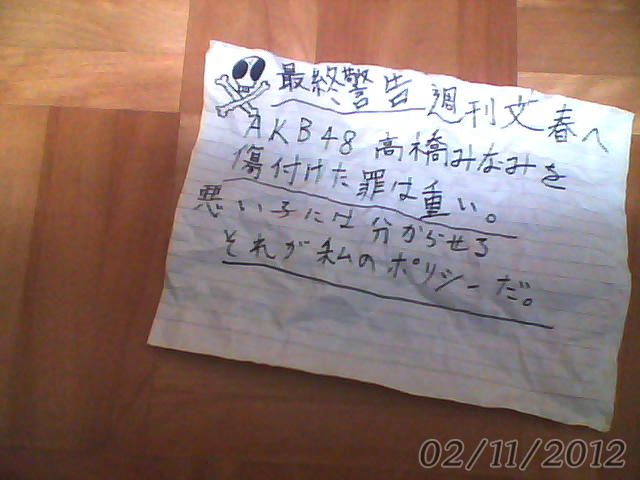 最終警告 週刊文春へ
AKB48 高橋みなみを
傷付けた罪は重い。
悪い子には分からせる
それが私のポリシーだ。
02/11/2012